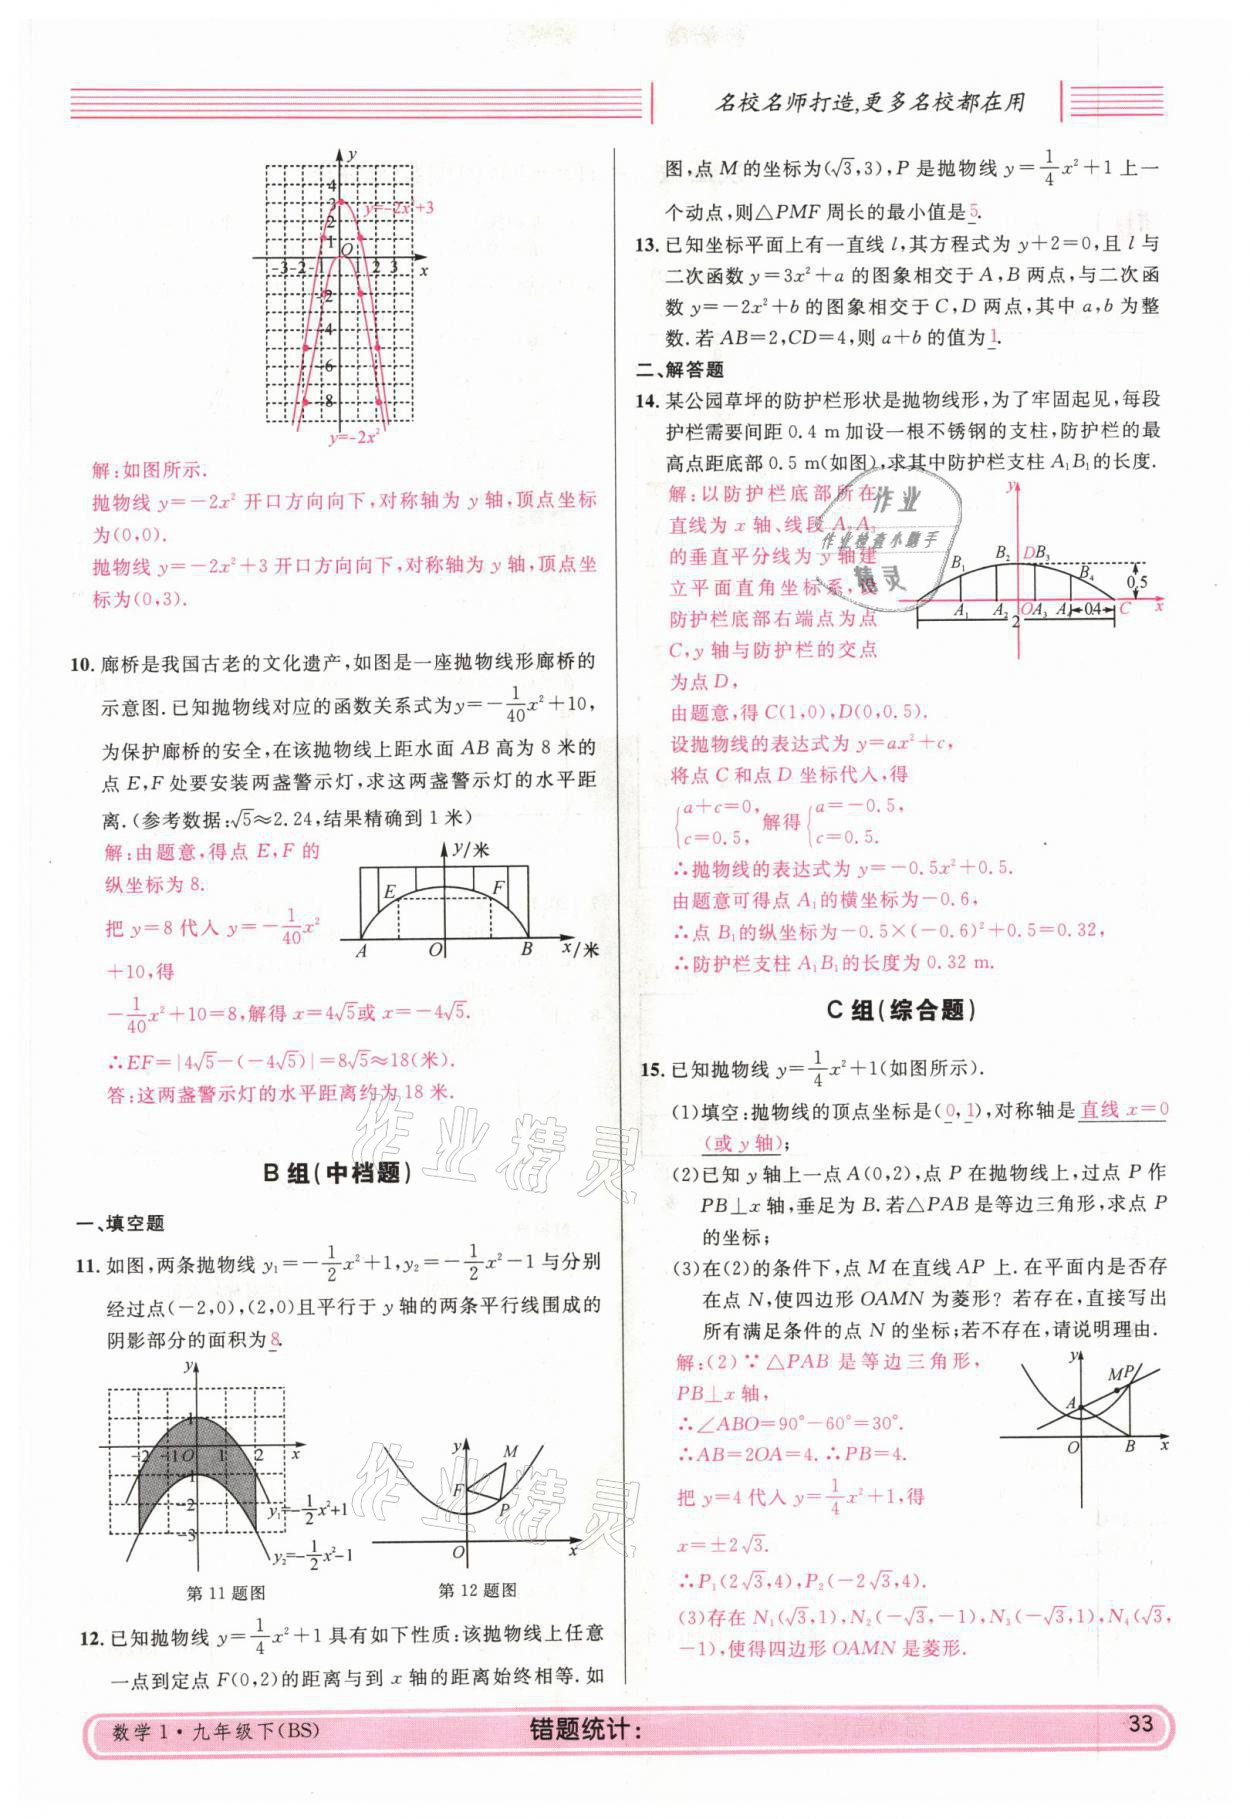 名校名师打造,更多名校都在用
y
4
3
2
1
y=-2x²+3
O
-3 -2 -1 1 2 3 x
-2
-4
-6
-8
y=-2x²
解:如图所示.
抛物线 y=-2x² 开口方向向下,对称轴为 y 轴,顶点坐标
为(0,0).
抛物线 y=-2x²+3 开口方向向下,对称轴为 y 轴,顶点坐
标为(0,3).
10. 廊桥是我国古老的文化遗产,如图是一座抛物线形廊桥的
示意图.已知抛物线对应的函数关系式为y=-1/40x²+10,
为保护廊桥的安全,在该抛物线上距水面 AB 高为 8 米的
点 E,F 处要安装两盏警示灯,求这两盏警示灯的水平距
离.(参考数据:√5≈2.24,结果精确到 1 米)
解:由题意,得点 E,F 的
纵坐标为 8.
把 y=8 代入 y=-1/40x²
+10,得
-1/40x²+10=8,解得 x=4√5或 x=-4√5.
∴EF=|4√5-(-4√5)|=8√5≈18(米).
答:这两盏警示灯的水平距离约为 18 米.
y/米
E F
A O B x/米
B 组(中档题)
一、填空题
11. 如图,两条抛物线 y₁=-1/2x²+1,y₂=-1/2x²-1 与分别
经过点(-2,0),(2,0)且平行于 y 轴的两条平行线围成的
阴影部分的面积为8.
y
1
-2 -1 O 1 2 x
-1
-2
-3
y₁=-1/2x²+1
y₂=-1/2x²-1
第 11 题图
y
M
F
P
O x
第 12 题图
12. 已知抛物线 y=1/4x²+1 具有如下性质:该抛物线上任意
一点到定点 F(0,2)的距离与到 x 轴的距离始终相等.如
图,点 M 的坐标为(√3,3),P 是抛物线 y=1/4x²+1 上一
个动点,则△PMF 周长的最小值是5.
13. 已知坐标平面上有一直线 l,其方程式为 y+2=0,且 l 与
二次函数 y=3x²+a 的图象相交于 A,B 两点,与二次函
数 y=-2x²+b 的图象相交于 C,D 两点,其中 a,b 为整
数.若 AB=2,CD=4,则 a+b 的值为1.
二、解答题
14. 某公园草坪的防护栏形状是抛物线形,为了牢固起见,每段
护栏需要间距 0.4 m 加设一根不锈钢的支柱,防护栏的最
高点距底部 0.5 m(如图),求其中防护栏支柱 A₁B₁的长度.
解:以防护栏底部所在
直线为 x 轴、线段 A₂A₃
的垂直平分线为 y 轴建
立平面直角坐标系,设
防护栏底部右端点为点
C,y 轴与防护栏的交点
为点 D,
y
B₁ B₂ D B₃ B₄
0.5
A₁ A₂ O A₃ A₄ 0.4 C x
2
由题意,得 C(1,0),D(0,0.5).
设抛物线的表达式为 y=ax²+c,
将点 C 和点 D 坐标代入,得
{a+c=0, c=0.5, 解得 {a=-0.5, c=0.5.
∴抛物线的表达式为 y=-0.5x²+0.5.
由题意可得点 A₁的横坐标为-0.6,
∴点 B₁的纵坐标为-0.5×(-0.6)²+0.5=0.32,
∴防护栏支柱 A₁B₁的长度为 0.32 m.
C 组(综合题)
15. 已知抛物线 y=1/4x²+1(如图所示).
(1)填空:抛物线的顶点坐标是(0,1),对称轴是直线 x=0
(或 y 轴);
(2)已知 y 轴上一点 A(0,2),点 P 在抛物线上,过点 P 作
PB⊥x 轴,垂足为 B.若△PAB 是等边三角形,求点 P
的坐标;
(3)在(2)的条件下,点 M 在直线 AP 上.在平面内是否存
在点 N,使四边形 OAMN 为菱形?若存在,直接写出
所有满足条件的点 N 的坐标;若不存在,请说明理由.
解:(2)∵△PAB 是等边三角形,
PB⊥x 轴,
∴∠ABO=90°-60°=30°.
∴AB=2OA=4.∴PB=4.
把 y=4 代入 y=1/4x²+1,得
x=±2√3.
∴P₁(2√3,4),P₂(-2√3,4).
(3)存在 N₁(√3,1),N₂(-√3,-1),N₃(-√3,1),N₄(√3,
-1),使得四边形 OAMN 是菱形.
y
M P
A
O B x
作业
作业检查小助手
精灵
作业精灵
作业精灵
数学 1·九年级下(BS)
错题统计:
33